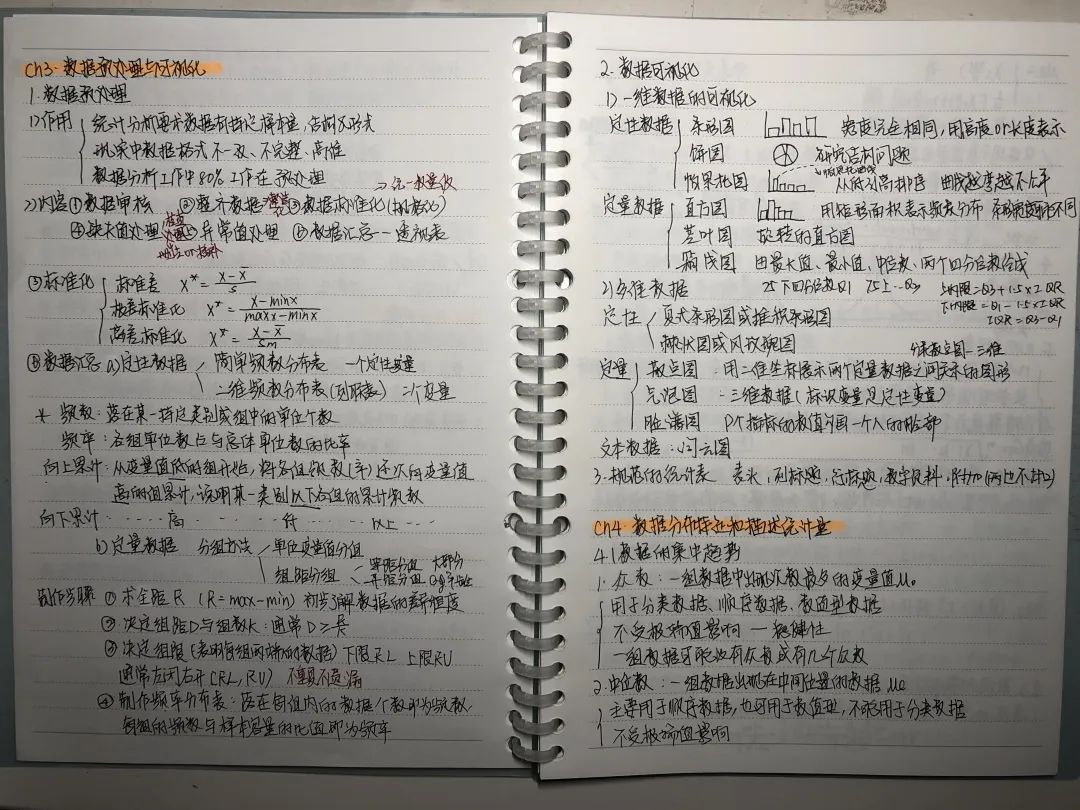 Ch3. 数据预处理与可视化
1. 数据预处理
1)作用 统计分析要求数据有指定样本量,结构及形式
现实中数据格式不一致、不完整、高维
数据分析工作中80%工作在预处理
→统一数量级
2)内容 ①数据审核 ②整齐数据 ③数据标准化(规格化)
④缺失值处理 ⑤异常值处理 ⑥数据汇总—透视表
删除
处理
③标准化 标准差 X* = (x-x̄)/s
极差标准化 X* = (x-minx)/(maxx-minx)
离差标准化 X* = (x-x̄)/sm
⑥数据汇总 a)定性数据 简单频数分布表 一个定性变量
二维频数分布表(列联表) 二个变量
* 频数:落在某一指定类别或组中的单位个数
频率:各组单位数占与总体单位数的比率
向上累计:从变量值低的组开始,将各组频数(率)逐次向变量值
高的组累计,说明某一类别以下各组的累计频数
向下累计 ····· 高 ······ 低 ······ 以上 ···
b)定量数据 分组方法 单位变量值分组
组距分组 等距分组 大部分
异距分组
制作步骤 ①求全距R (R=max-min) 初步了解数据的差异程度
②决定组距D与组数K:通常D≥R/K
③决定组限(表明每组两端的数据) 下限RL 上限RU
通常左闭右开[RL, RU) 不重复不遗漏
④制作频率分布表:落在每组内的数据个数即为频数,
每组的频数与样本容量的比值即为频率
2. 数据可视化
1)一维数据的可视化
定性数据 条形图 宽度完全相同,用高度or长度表示
饼图 研究结构问题
帕累托图 帕累托曲线 从低到高排序 曲线越弯越不公平
定量数据 直方图 用矩形面积表示频数分布 条形宽度可不同
茎叶图 旋转的直方图
箱线图 由最大值、最小值、中位数、两个四分位数绘成
2)多维数据 25 下四分位数Q1 75上··Q3 上内限=Q3+1.5×IQR
下内限=Q1-1.5×IQR
IQR=Q3-Q1
定性 复式条形图或堆积条形图
棘状图或风玫瑰图 分类散点图—三维
定量 散点图:用二维坐标展示两个定量数据之间关系的图形
气泡图:三维数据(标识变量是定性变量)
脸谱图 P个指标的数值勾画一个人的脸部
文本数据:词云图
3. 规范的统计表 表头,列标题,行标题,数字资料,附加(两边不封口)
Ch4. 数据分布特征和描述统计量
4.1数据的集中趋势
1. 众数:一组数据中出现次数最多的变量值Mo
用于分类数据、顺序数据、数值型数据
不受极端值影响 — 稳健性
一组数据可能没有众数或有几个众数
2. 中位数:一组数据出现在中间位置的数据 Me
主要用于顺序数据,也可用于数值型,不能用于分类数据
不受极端值影响